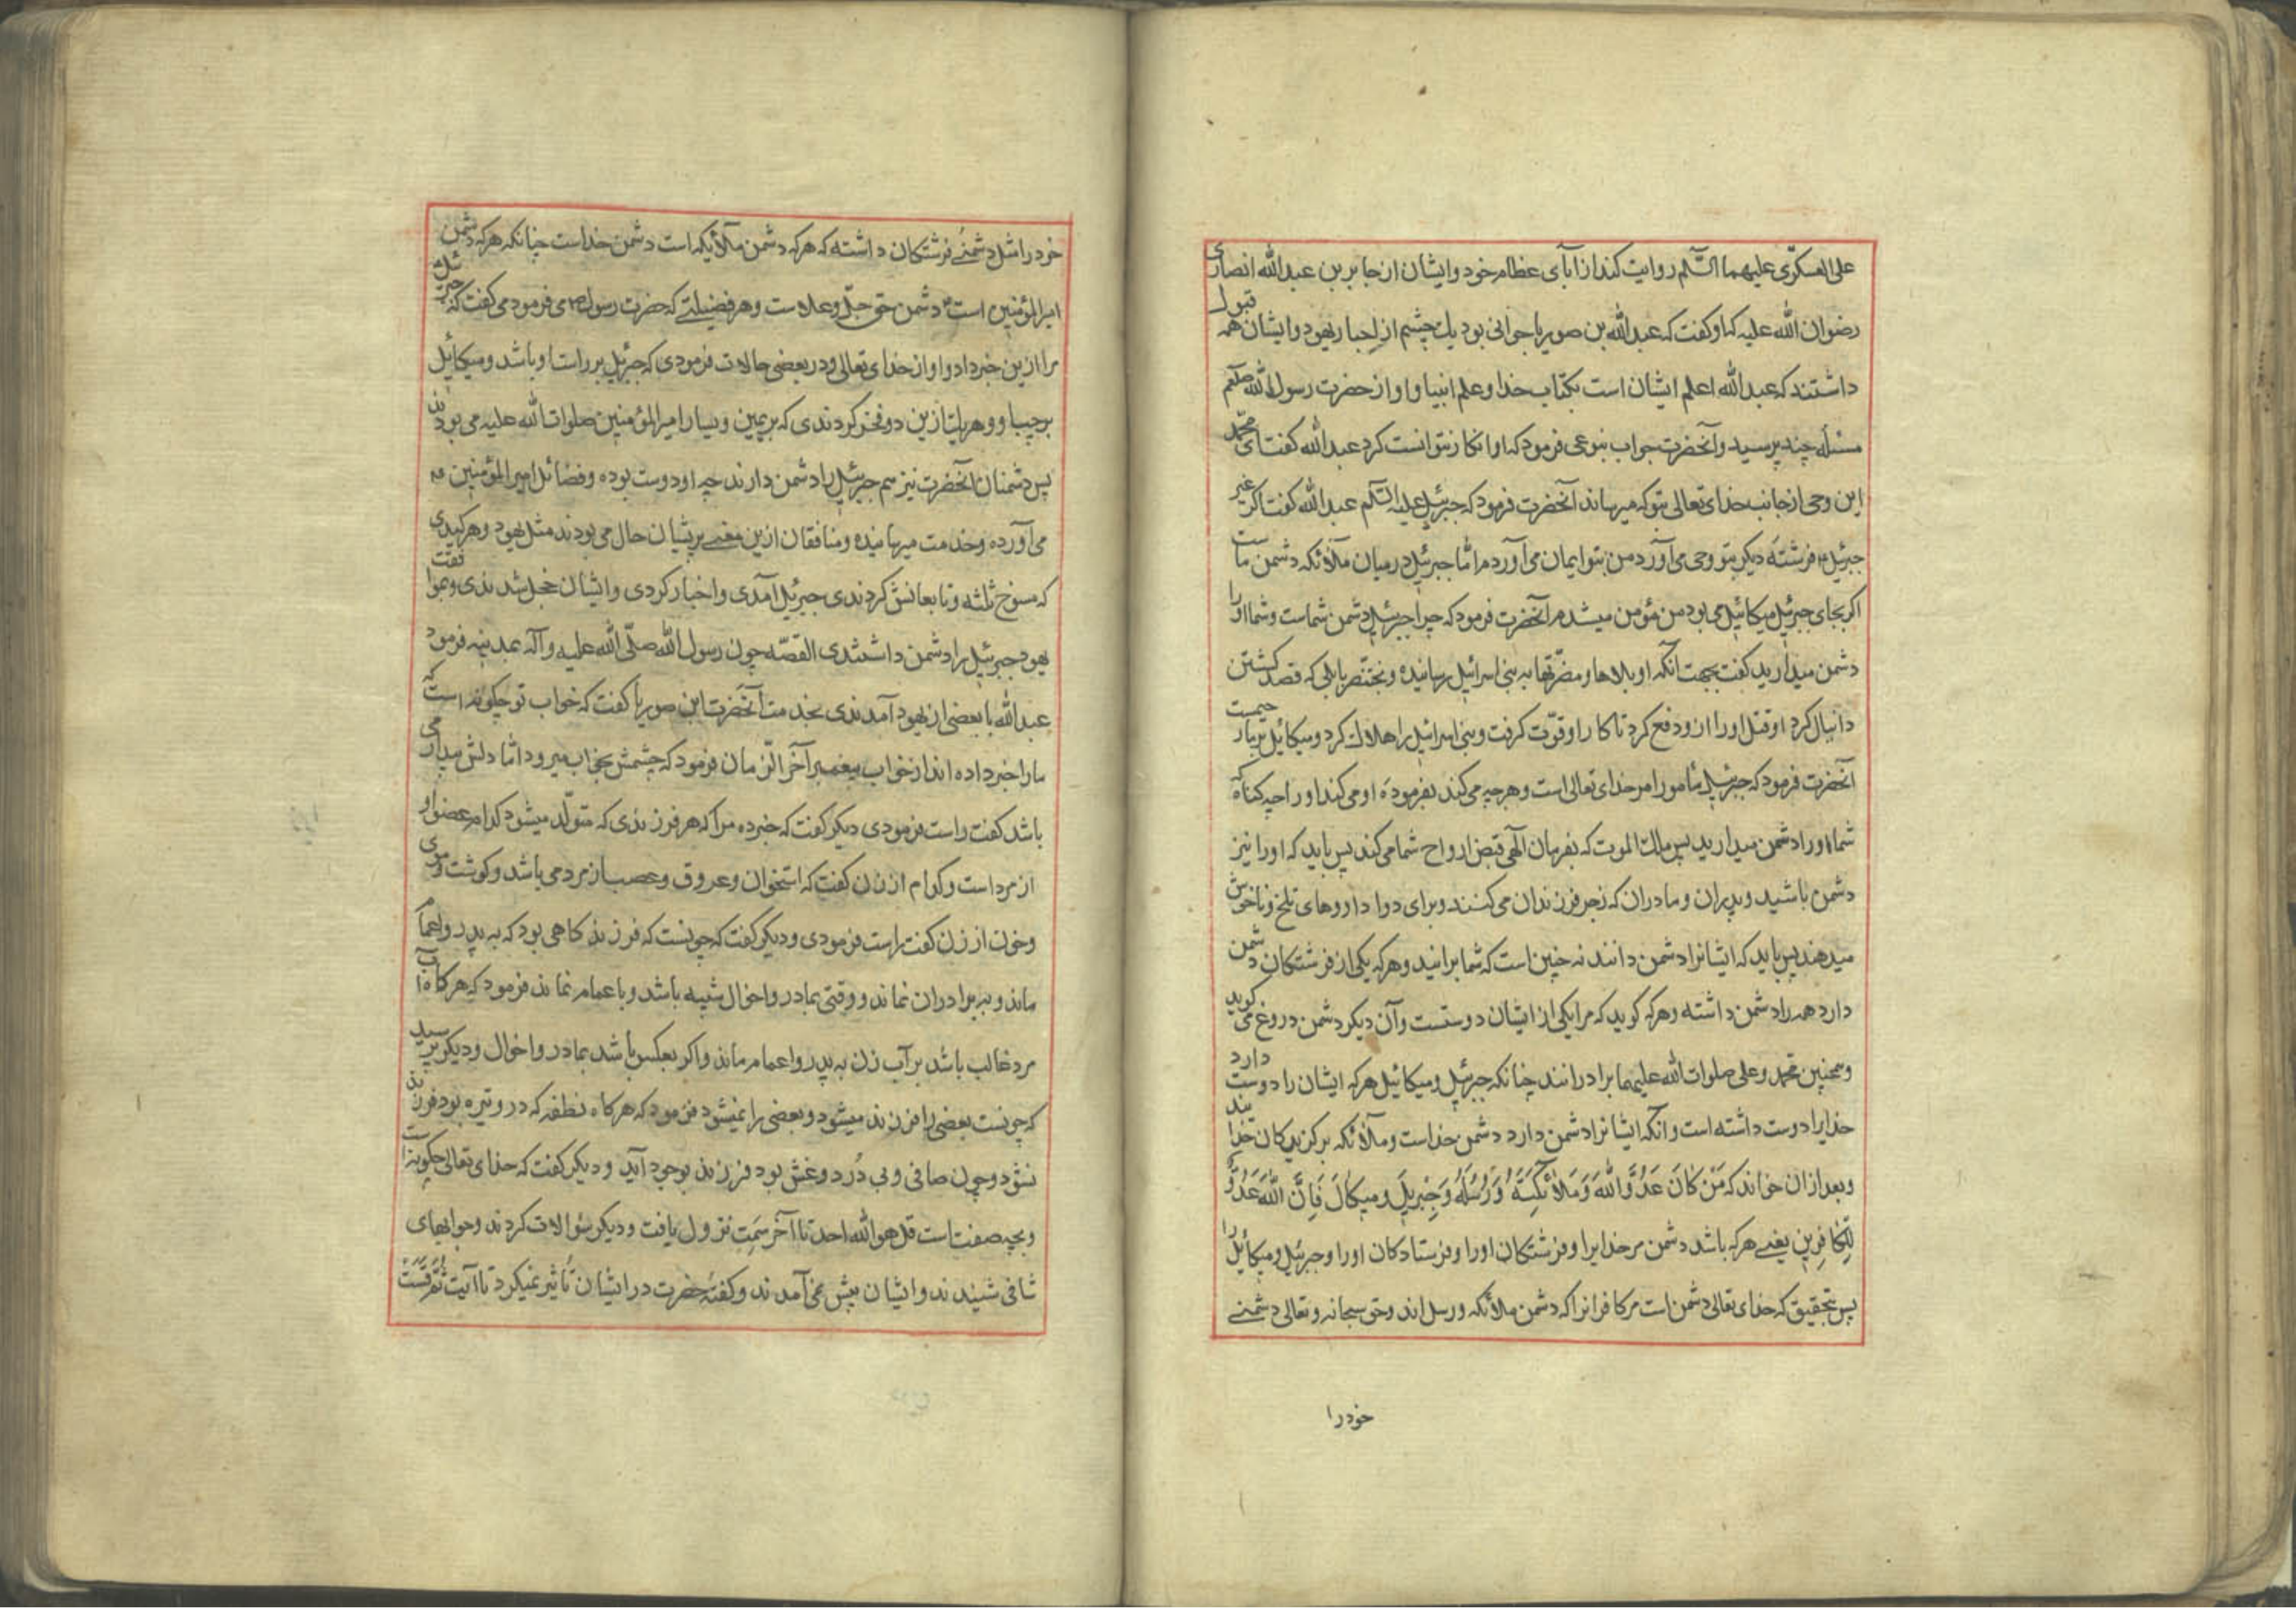 علی العسکری علیهما السّلام روایت کند از آبای عظام خود و ایشان از جابر بن عبدالله انصاری
رضوان الله علیه که او کفت که عبدالله بن صوریا جوانی بود یک چشم از احبار یهود و ایشان همه قبول
داشتند که عبدالله اعلم ایشان است بکتاب خدا و علم انبیا و او از حضرت رسول الله صلعم
مسئله چند پرسید و آنحضرت جواب بنوعی فرمود که او انکار نتوانست کرد عبدالله کفت ای محمّد
این وحی از جانب خدای تعالی بتو که میرساند آنحضرت فرمود که جبرئیل علیه السّلام عبدالله کفت اکر غیر
جبرئیل فرشتهٔ دیکر بتو وحی می آورد من بتو ایمان می آوردم امّا جبرئیل در میان ملائکه دشمن ماست
اکر بجای جبرئیل میکائیل می بود من مؤمن میشدم آنحضرت فرمود که چرا جبرئیل دشمن شماست و شما اورا
دشمن میدارید کفت بجهت آنکه او بلاها و مضرّتها به بنی اسرائیل رسانیده و بختنصر بابلی که قصد کشتن
دانیال کرد او قتل اورا ازو دفع کرد تا کار او قوّت کرفت و بنی اسرائیل را هلاک کرد و میکائیل
آنحضرت فرمود که جبرئیل مأمور امر خدای تعالی است و هرچه می کند بفرمودهٔ او می کند اورا چه کناه که
شما اورا دشمن میدارید پس ملک الموت که بفرمان آلهی قبض ارواح شما می کند پس باید که اورا نیز
دشمن باشید و پدران و مادران که زجر فرزندان می کنند و برای دوا داروهای تلخ و ناخوش
میدهند پس باید که ایشانرا دشمن دانند نه چنین است که شما برانید و هرکه یکی از فرشتکان دشمن
دارد همه را دشمن داشته و هرکه کوید که مرا یکی از ایشان دوستست و آن دیکر دشمن دروغ می کوید
و همچنین محمّد و علی صلوات الله علیهما برادرانند چنانکه جبرئیل و میکائیل هرکه ایشان را دوست دارد
خدایرا دوست داشته است و آنکه ایشانرا دشمن دارد دشمن خداست و ملائکه برکزیدکان خدایند
و بعد از ان خواند که مَنْ کَانَ عَدُوًّا لِلّٰهِ وَمَلائِکَتِهِ وَرُسُلِهِ وَجِبْرِیلَ وَمیکالَ فَاِنَّ اللهَ عَدُوٌّ
لِلْکافِرِینَ یعنی هرکه باشد دشمن مر خدایرا و فرشتکان اورا و فرستادکان اورا و جبرئیل و میکائیل را
پس بتحقیق که خدای تعالی دشمن است مر کافرانرا که دشمن ملائکه و رسل اند و حق سبحانه و تعالی دشمنی
خودرا
خودرا مثل دشمنی فرشتکان داشته که هرکه دشمن ملائکه است دشمن خداست چنانکه هرکه دشمن
امیرالمؤمنین است دشمن حق جلّ و علاست و هر فضیلتی که حضرت رسول ص می فرمود می کفت که جبرئیل
مرا ازین خبر داد و او از خدای تعالی و در بعضی حالات فرمودی که جبرئیل بر راست او باشد و میکائیل
بر چپ او و هریک ازین دو فخر کردندی که بر یمین و یسار امیرالمؤمنین صلوات الله علیه می بودند
پس دشمنان آنحضرت نیز هم جبرئیل را دشمن دارند چه او دوست بوده و فضائل امیرالمؤمنین
می آورده و خدمت میرسانیده و منافقان ازین معنی پریشان حال می بودند مثل یهود و هر کیدی
که منسوخ ثلثه و تابعانش کردندی جبرئیل آمدی و اخبار کردی و ایشان خجل شدندی و بموافقت
یهود جبرئیل را دشمن داشتندی القصّه چون رسول الله صلّی الله علیه و آله بمدینه فرمود
عبدالله با بعضی از یهود آمدندی بخدمت آنحضرت ابن صوریا کفت که خواب تو چکونه است که
مارا خبر داده اند از خواب پیغمبر آخر الزّمان فرمود که چشمش بخواب میرود امّا دلش بیدار می
باشد کفت راست فرمودی دیکر کفت که خبر ده مرا که هر فرزندی که متولّد میشود کدام عضو او
از مرد است و کدام از زن کفت که استخوان و عروق و عصب از مرد می باشد و کوشت و موی
و خون از زن کفت راست فرمودی و دیکر کفت که چونست که فرزند کاهی بود که به پدر و اعمام
ماند و به برادران نماند و وقتی بمادر و اخوال شبیه باشد و با عمام نماند فرمود که هرکاه آب
مرد غالب باشد بر آب زن به پدر و اعمام ماند و اکر بعکس باشد بمادر و اخوال و دیکر پرسید
که چونست بعضی را فرزند میشود و بعضی را نمیشود فرمود که هرکاه نطفه کدر و تیره بود فرزند
نشود و چون صافی و بی دُرد و غش بود فرزند بوجود آید و دیکر کفت که خدای تعالی چکونه است
و بچه صفت است قل هو الله احد تا آخر سمت نزول یافت و دیکر سؤالات کردند و جوابهای
شافی شنیدند و ایشان پیش نمی آمدند و کفتهٔ حضرت در ایشان تأثیر نمیکرد تا آیت ثُمَّ قَسَتْ